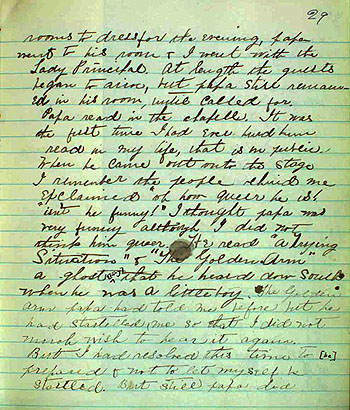 29
rooms to dress for the evening, papa
went to his room & I went with the
Lady Principal. At length the guests
began to arive, but papa still remain
ed in his room, until called for.
Papa read in the chapell. It was
the first time I had ever heard him
read in my life, that is in public.
When he came out onto the stage
I remember the people behind me
exclaimed oh how queer he is!
"isn't he funny!" I thought papa was
very funny although I did not
think him queer. He read "A trying
Situation" & "The Golden Arm"
a ghost that he heard down South
when he was a little boy. The Golden
arm papa had told me before but he
had startled me so that I did not
much wish to hear it again.
But I had resolved this time to [be]
prepared & not to let my self be
startled. But still papa did